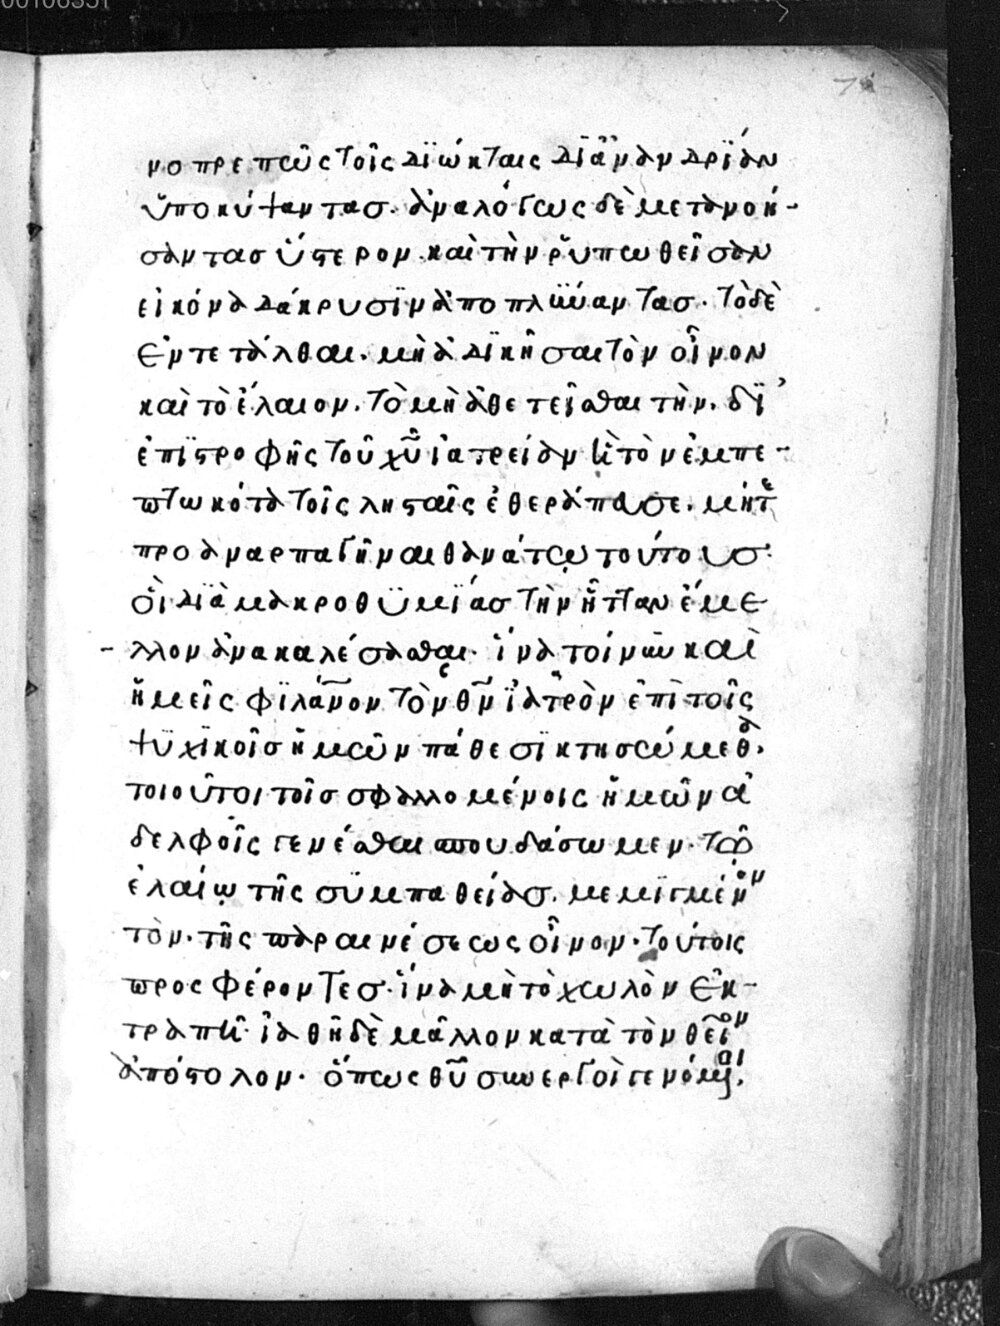 νοπρεπῶς τοῖς διώκταις δι' ἀνανδρίαν
ὑποκύψαντας. ἀναλόγως δὲ μετανοή-
σαντας ὕστερον. καὶ τὴν ῥυπωθεῖσαν
εἰκόνα δάκρυσιν ἀποπλύναντας. τὸ δὲ
ἐντετάλθαι. μὴ ἀδικῆσαι τὸν οἶνον
καὶ τὸ ἔλαιον. τὸ μὴ ἀθετεῖσθαι τὴν. δι'
ἐπιστροφῆς τοῦ χῦ ἰατρείαν ἣ τὸν ἐμπε-
πτωκότα τοῖς λησταῖς ἐθεράπευσε. μήτε
προαναρπαγῆναι θανάτῳ τούτους
οἳ διὰ μακροθυμίας τὴν ἧτταν ἔμε
λλον ἀνακαλέσασθαι. ἵνα τοίνυν καὶ
ἡμεῖς φιλάνον τὸν θν ἰατρὸν ἐπὶ τοῖς
ψυχικοῖς ἡμῶν πάθεσι κτησώμεθα.
τοιοῦτοι τοῖς σφαλλομένοις ἡμῶν ἀ
δελφοῖς γενέσθαι σπουδάσωμεν. τῷ
ἐλαίῳ τῆς συμπαθείας. μεμιγμένον
τὸν. τῆς παραινέσεως οἶνον. τούτοις
προσφέροντες. ἵνα μὴ τὸ χωλὸν ἐκ-
τραπῇ. ἰαθῇ δὲ μᾶλλον κατὰ τὸν θεῖον
ἀπόστολον. ὅπως θῦ συνεργοὶ γενόμενοι.